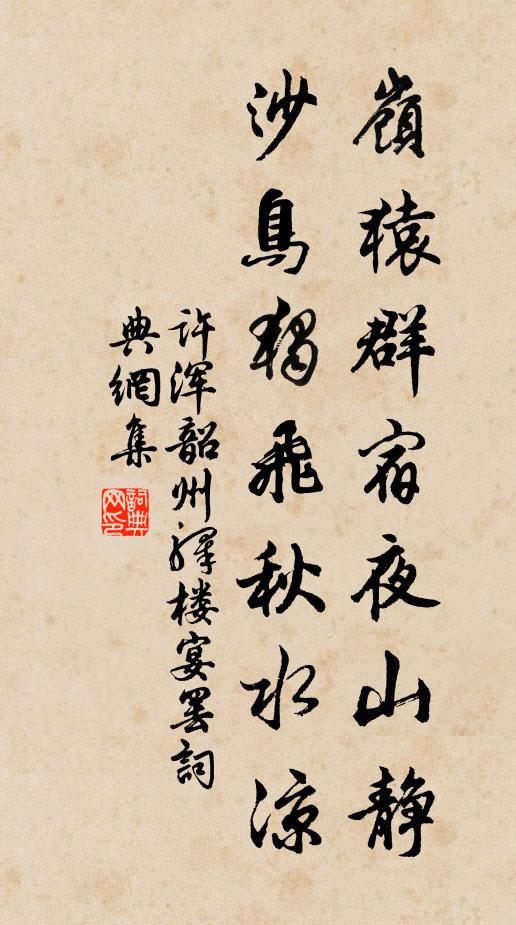 嶺猿群宿夜山静
沙鳥獨飛秋水涼
许浑韶州驛楼宴罢詞
典網集
詞典
网印